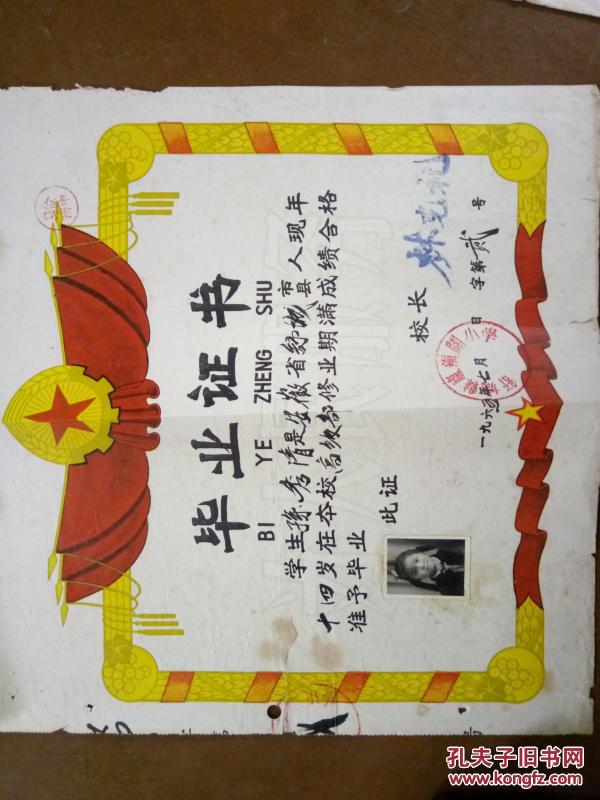 毕业证书
BI YE ZHENG SHU
学生孙秀清是安徽省舒城市县人现年
十四岁在本校高级部修业期满成绩合格
准予毕业 此证
校长 林克纯
一九六 年七月 日 字第贰号
孔夫子旧书网
www.kongfz.com